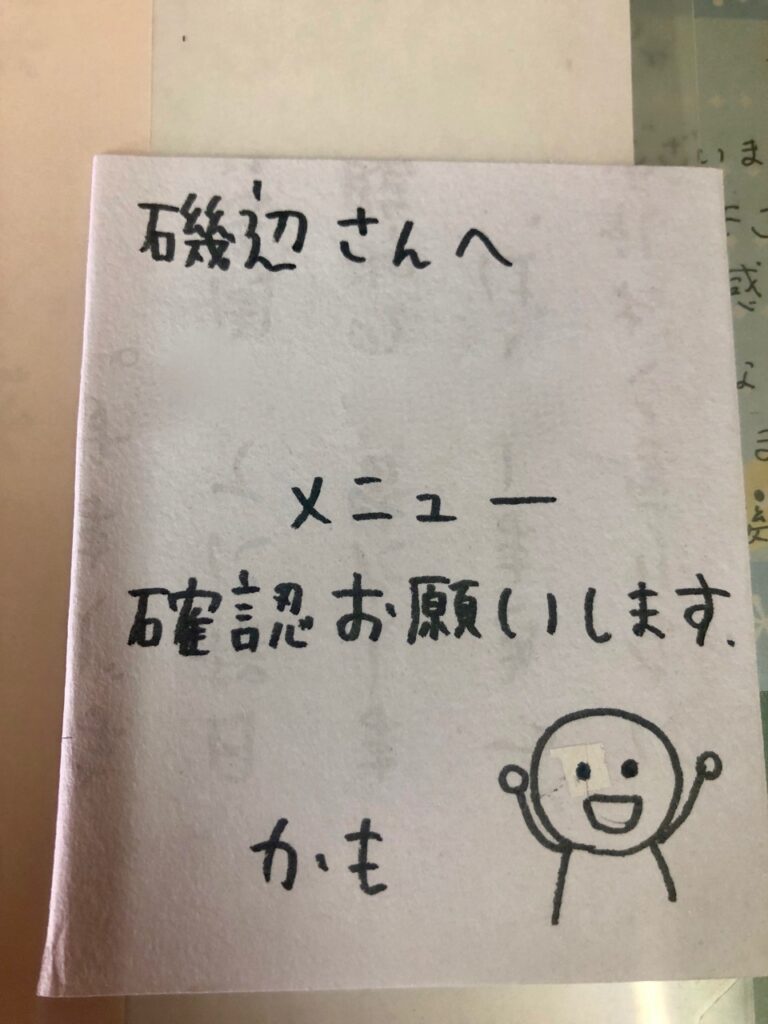 磯辺さんへ
メニュー
確認お願いします.
かも